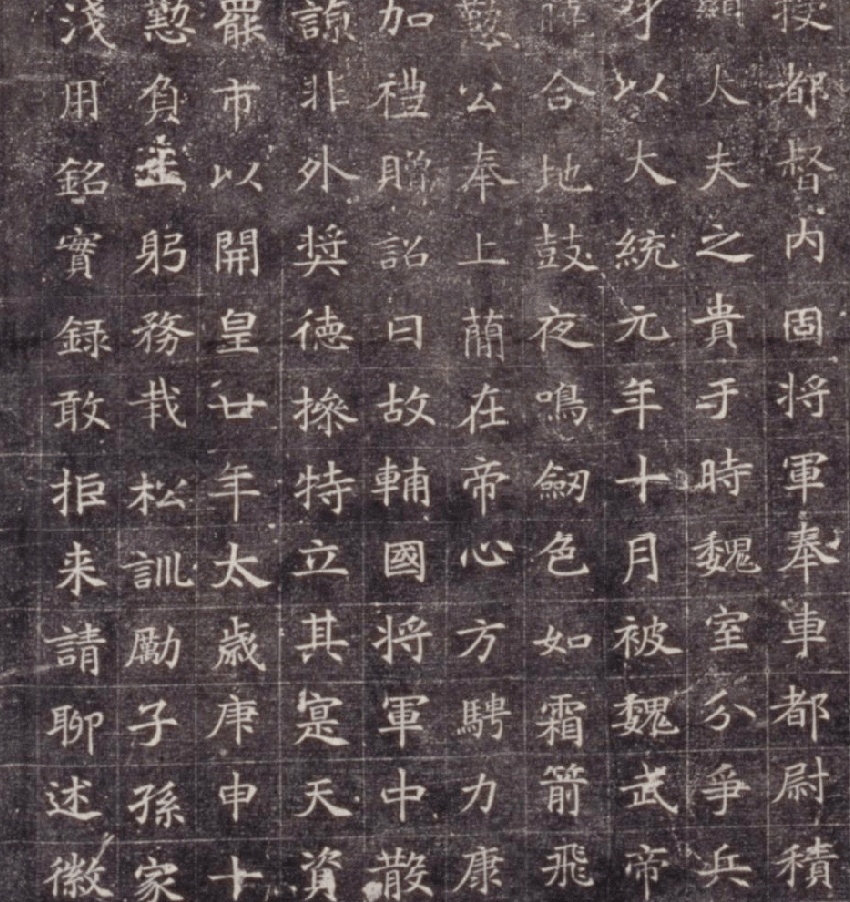 授都督内固将軍奉車都尉積
大夫之貴于時魏室分爭兵
以大統元年十月被魏武帝
合地鼓夜鳴劒色如霜箭飛
懃公奉上蕳在帝心方騁力康
加禮贈詔曰故輔國将軍中散
諒非外奨德操特立其寔天資
罷市以開皇廿年太歳庚申十
懃負土躬務栽松訓勵子孫家
淺用銘實録敢拒来請聊述徽